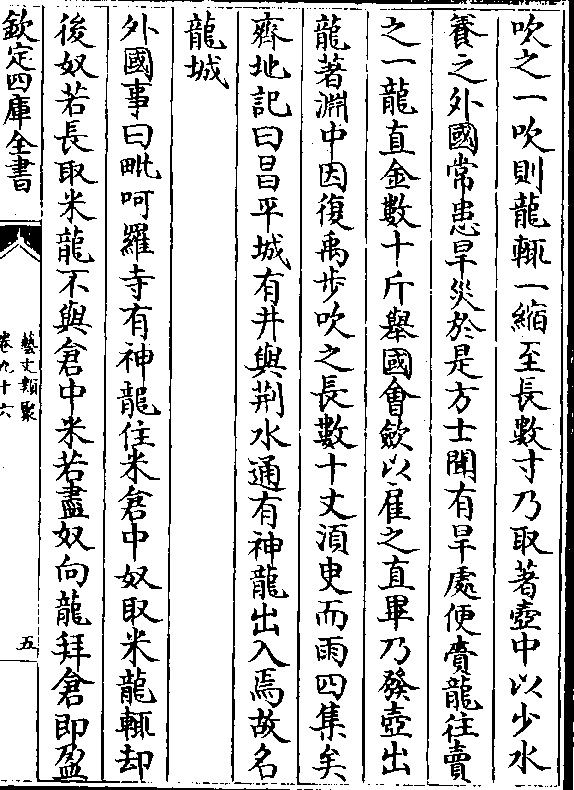 吹之一吹則龍輒一縮至長數寸乃取著壺中以少水
養之外國常患旱災於是方士聞有旱處便賫龍往賣
之一龍直金數十斤舉國會歛以雇之直畢乃發壺出
龍著淵中因復禹步吹之長數十丈湏臾而雨四集矣
齊地記曰昌平城有井與荆水通有神龍出入焉故名
龍城
外國事曰毗呵羅寺有神龍住米倉中奴取米龍輒却
後奴若長取米龍不與倉中米若盡奴向龍拜倉即盈
欽定四庫全書
藝文類聚
卷九十六
五